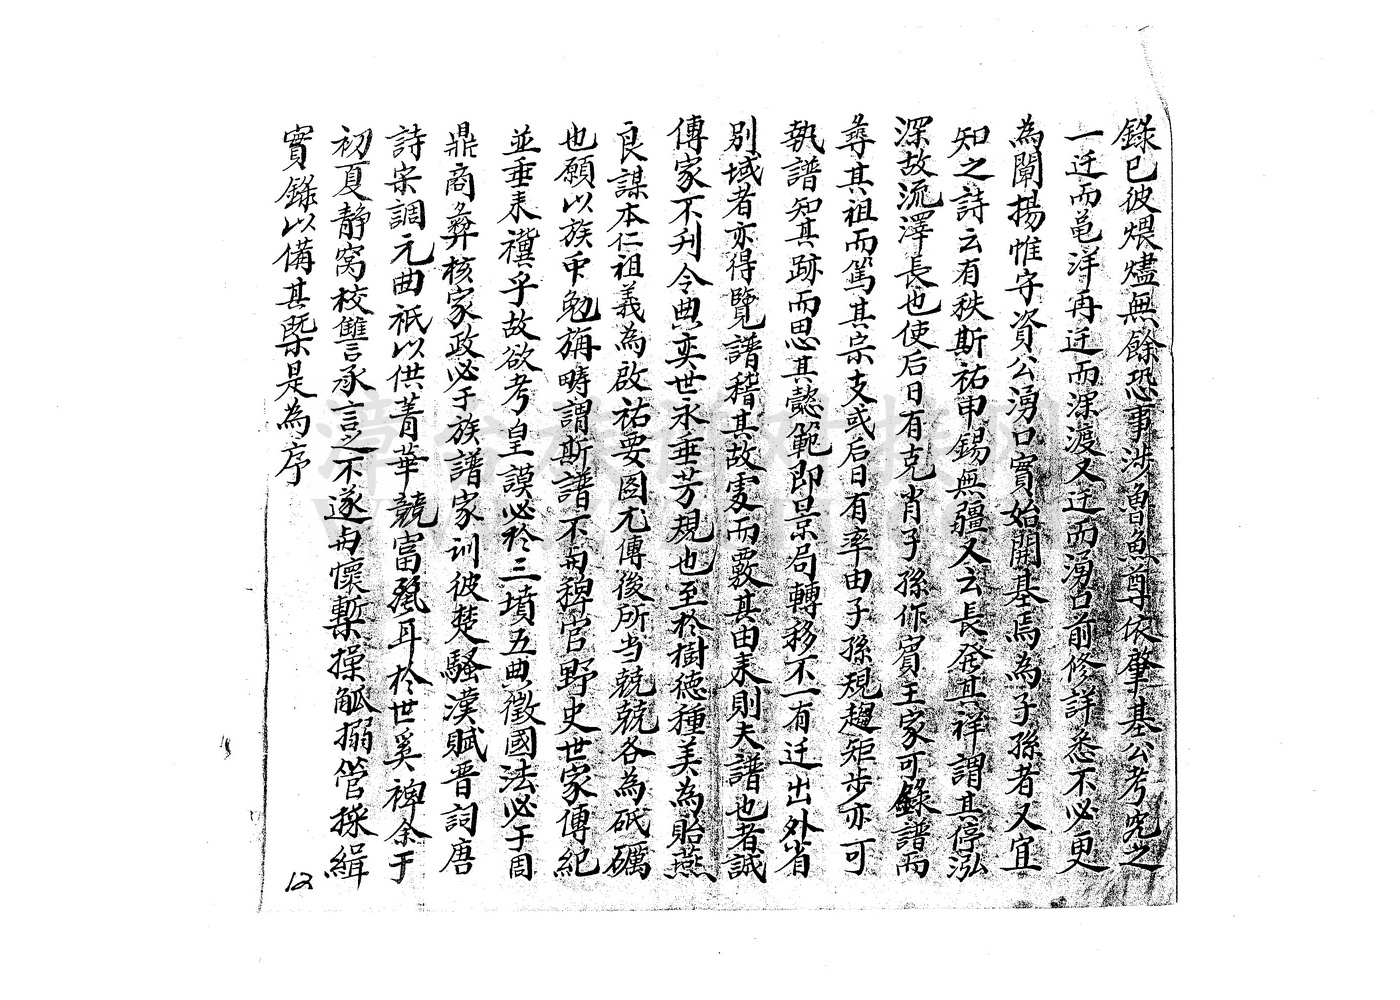 錄已彼煨燼無餘恐事涉魯魚尊依肇基公考究之
一迁而黾洋再迁而深渡又迁而湧口前修詳悉不必更
為闡揚惟守資公湧口實始開基焉為子孫者又宜
知之詩云有秩斯祜申錫無疆又云長發其祥謂其停泓
深故流澤長也使后日有克肖子孫作賓王家可錄譜而
尋其祖而篤其宗支或后日有率由子孫規趨矩步亦可
執譜知其跡而思其懿範即景局轉移不一有迁出外省
別域者亦得覽譜稽其故雯而覈其由来則夫譜也者誠
傳家不刋令典奕世永垂芳規也至於樹德種美為貽燕
良謀本仁祖義為啟祐要圖尢傳後所当兢兢各為砥礪
也願以族中勉旃疇謂斯譜不与稗官野史世家傳紀
並垂来禩乎故欲考皇謨必於三墳五典徵國法必于周
鼎商彝核家政必于族譜家训彼楚騷漢賦晋詞唐
詩宋調元曲祇以供菁華競富麗耳於世奚裨余于
初夏静窩校讐言承言之不遂与懷槧操觚搦管採緝
實錄以備其槩是為序
12